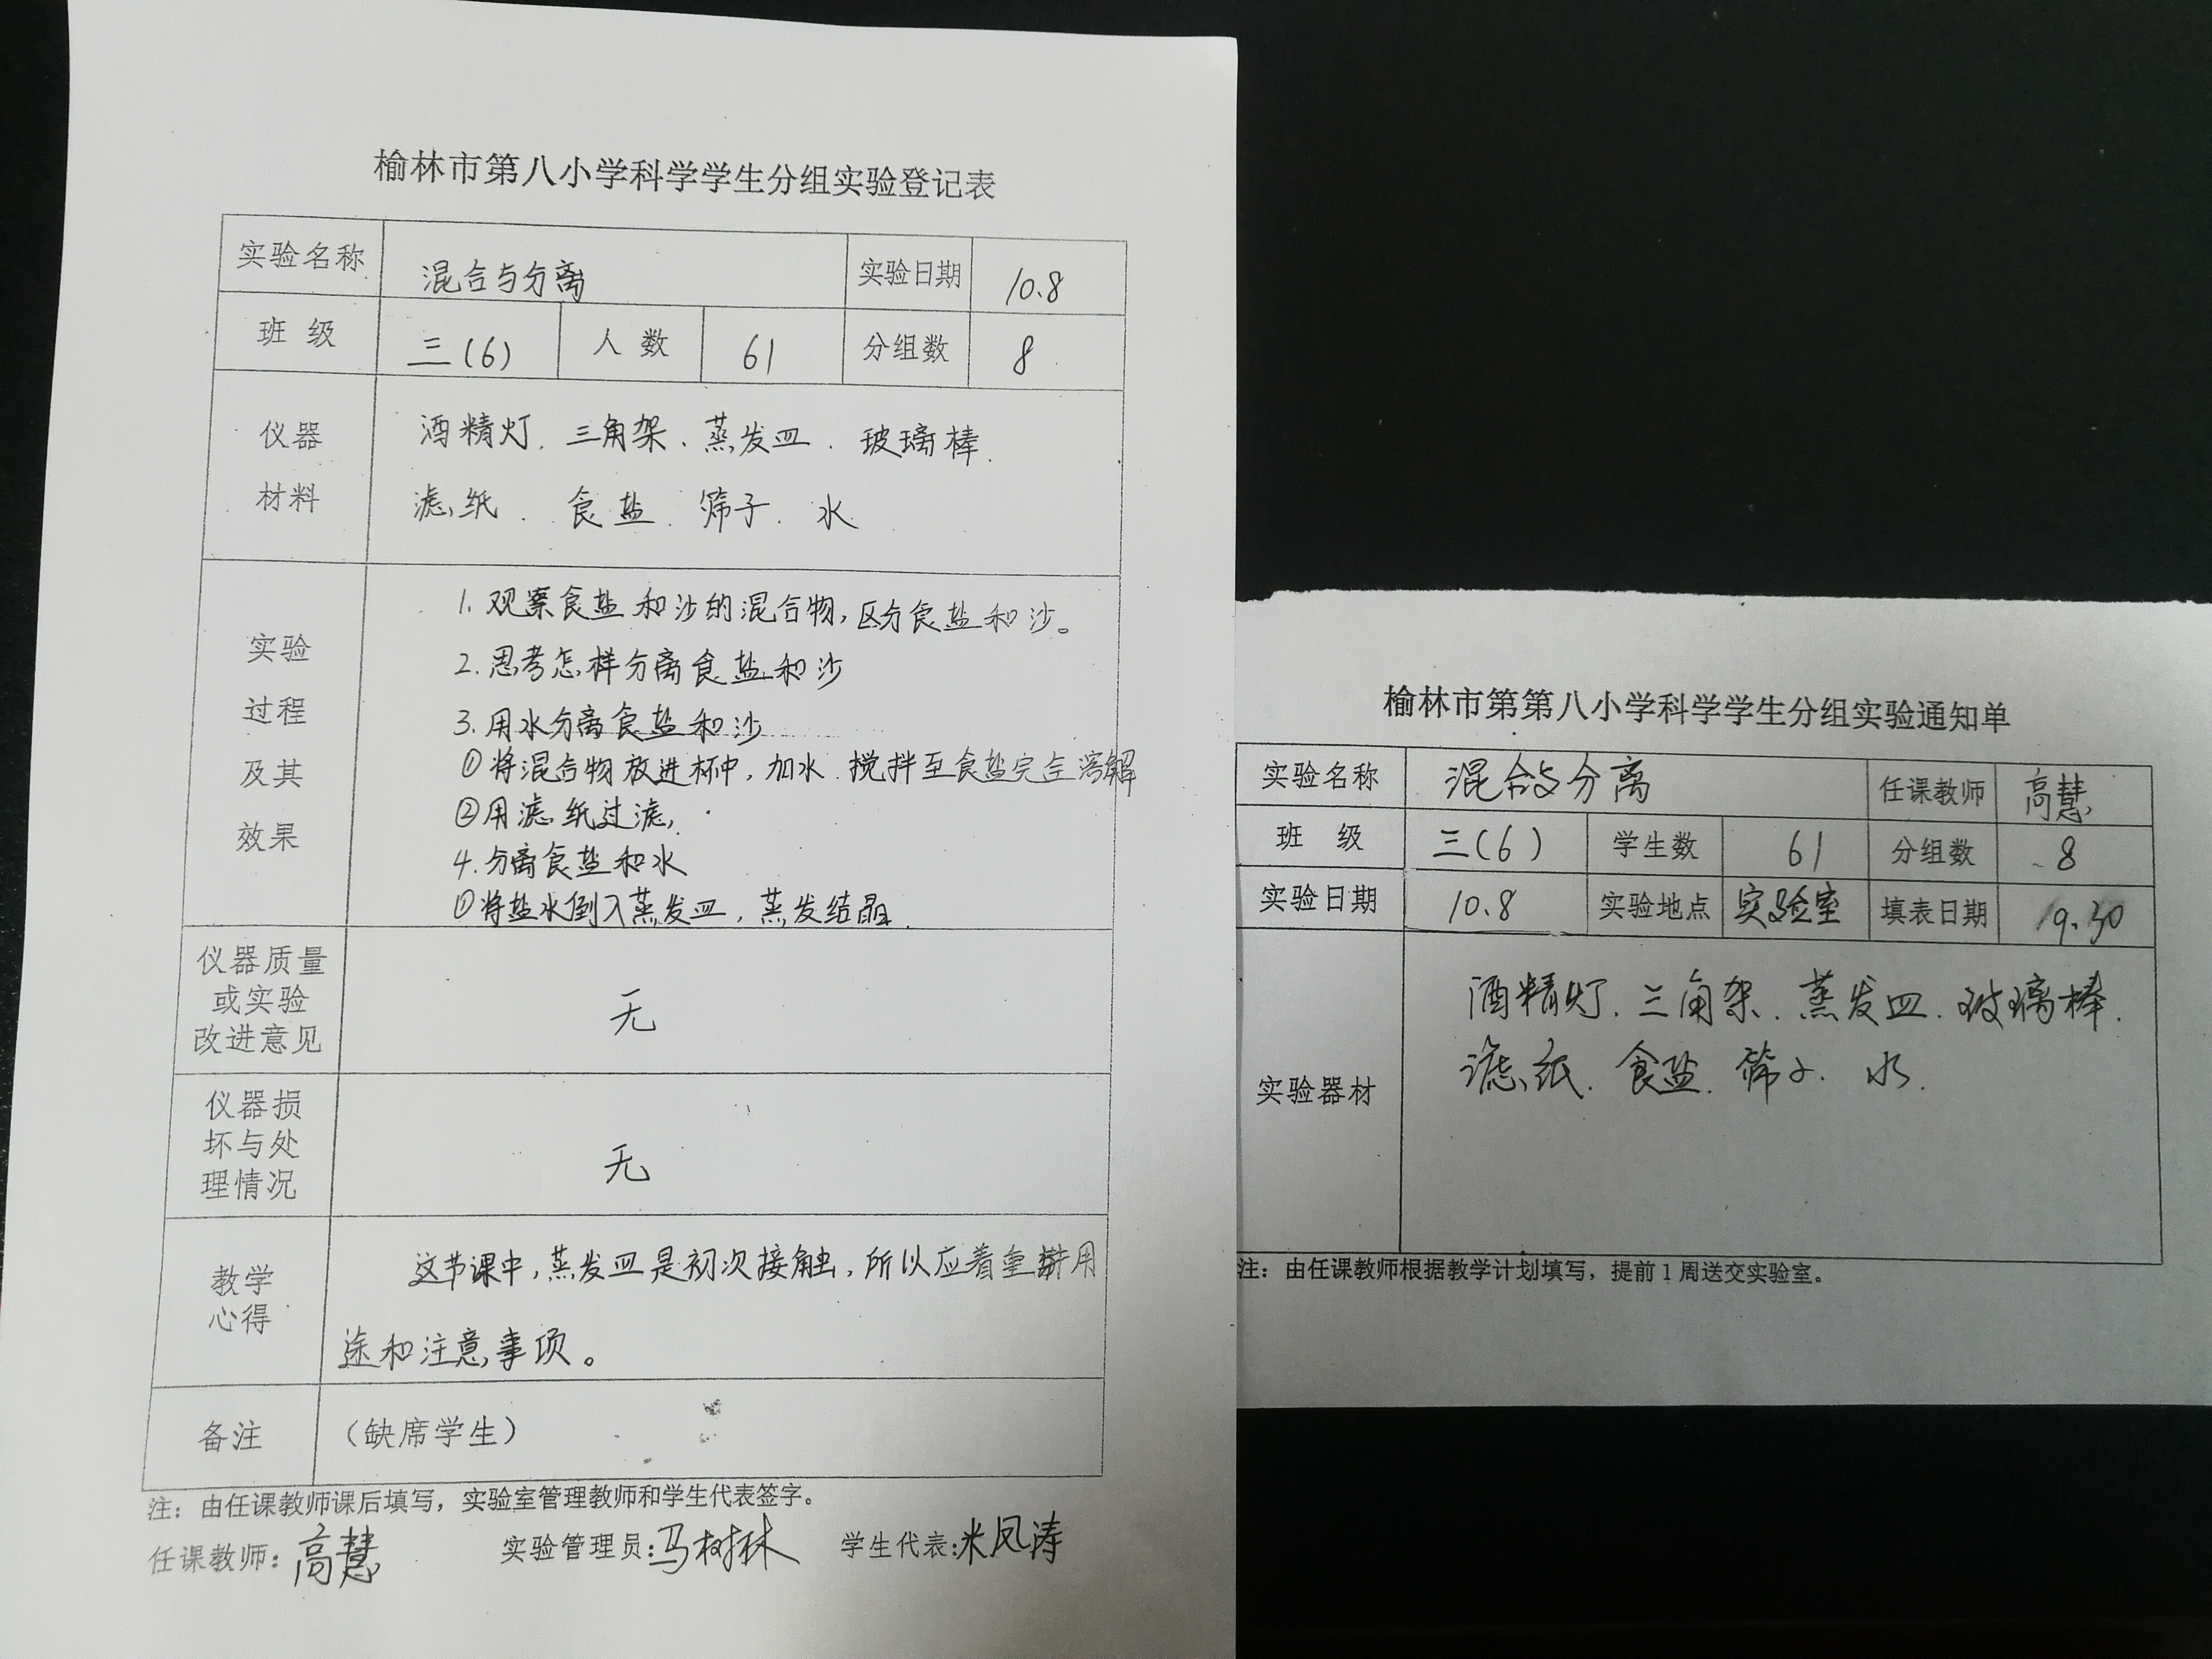 榆林市第八小学科学学生分组实验登记表
实验名称 混合与分离 实验日期 10.8
班 级 三(6) 人 数 61 分组数 8
仪器 酒精灯、三角架、蒸发皿、玻璃棒、
材料 滤纸、食盐、筛子、水
1. 观察食盐和沙的混合物,区分食盐和沙。
实验
2. 思考怎样分离食盐和沙
过程 3. 用水分离食盐和沙
及其 ①将混合物放进杯中,加水 搅拌至食盐完全溶解
效果 ②用滤纸过滤,
4. 分离食盐和水
①将盐水倒入蒸发皿,蒸发结晶.
仪器质量
或实验 无
改进意见
仪器损
坏与处 无
理情况
教学 这节课中,蒸发皿是初次接触,所以应着重讲用
心得 途和注意事项。
备注 (缺席学生)
注:由任课教师课后填写,实验室管理教师和学生代表签字。
任课教师:高慧 实验管理员:马树林 学生代表:米凤涛
榆林市第第八小学科学学生分组实验通知单
实验名称 混合与分离 任课教师 高慧
班 级 三(6) 学生数 61 分组数 8
实验日期 10.8 实验地点 实验室 填表日期
酒精灯、三角架、蒸发皿、玻璃棒、
滤纸、食盐、筛子、水.
实验器材
注:由任课教师根据教学计划填写,提前1周送交实验室。